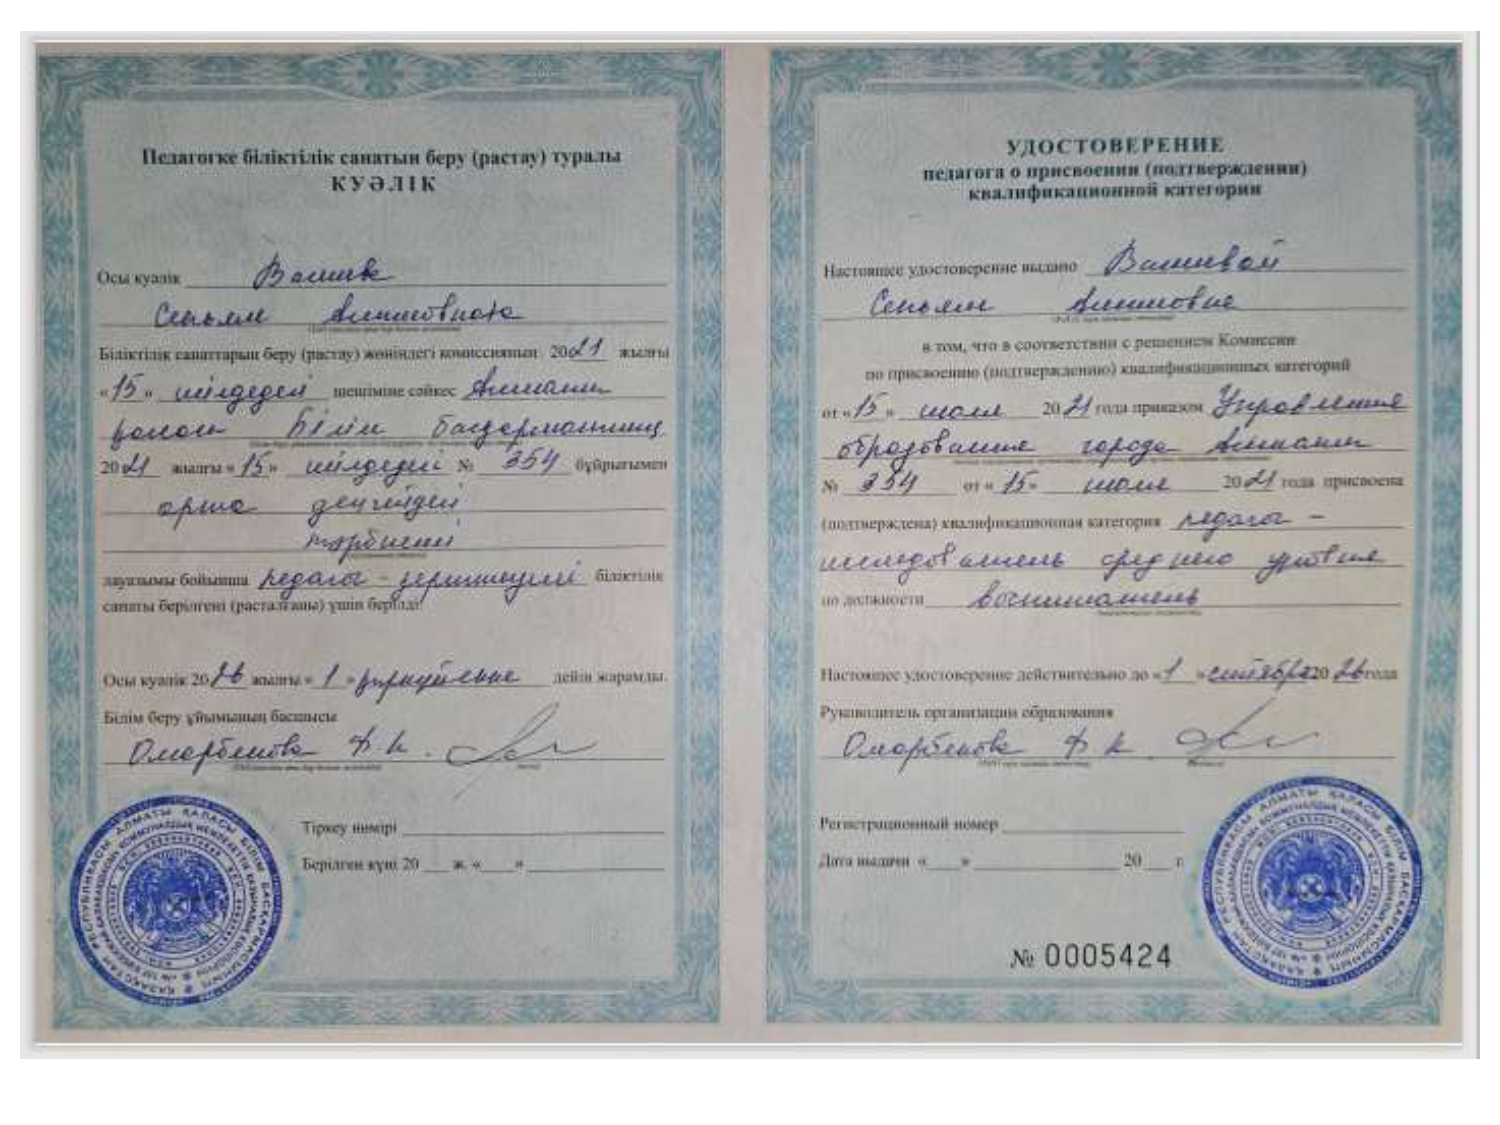 Педагогке біліктілік санатын беру (растау) туралы
КУӘЛІК
Осы куәлік
Біліктілік санаттарын беру (растау) жөніндегі комиссияның 2021 жылғы
«15» шілдедегі шешіміне сәйкес Алматы
қаласы Білім басқармасының
2021 жылғы «15» шілдедегі № 354 бұйрығымен
орта деңгейдегі
тәрбиеші
лауазымы бойынша педагог - зерттеушісі біліктілік
санаты берілгені (расталғаны) үшін берілді.
Осы куәлік 2026 жылғы «1» қыркүйекке дейін жарамды.
Білім беру ұйымының басшысы
Тіркеу нөмірі
Берілген күні 20 ж. « »
УДОСТОВЕРЕНИЕ
педагога о присвоении (подтверждении)
квалификационной категории
Настоящее удостоверение выдано
в том, что в соответствии с решением Комиссии
по присвоению (подтверждению) квалификационных категорий
от «15» июля 2021 года приказом Управления
образования города Алматы
№ 354 от «15» июля 2021 года присвоена
(подтверждена) квалификационная категория педагог -
исследователь среднего уровня
по должности воспитатель
Настоящее удостоверение действительно до «1» сентября 2026 года
Руководитель организации образования
Регистрационный номер
Дата выдачи « » 20 г.
№ 0005424